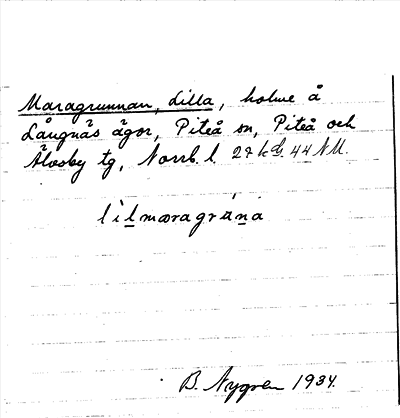 Maragrunnan, Lilla, holme å
Långnäs ägor, Piteå sn, Piteå och
Älvsby tg, Norrb. l. 24 k G. 44 NM
lìlmaragrána
B. Nygren 1934.